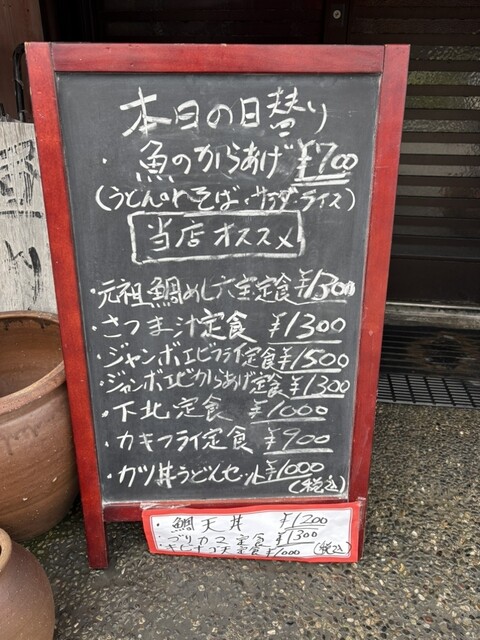 本日の日替り
・魚のからあげ ¥700
(うどんorそば・サラダ・ライス)
当店オススメ
・元祖鯛めし六宝定食 ¥1300
・さつま汁定食 ¥1300
・ジャンボエビフライ定食 ¥1500
・ジャンボエビからあげ定食 ¥1300
・下北定食 ¥1000
・カキフライ定食 ¥900
・カツ丼うどんセット ¥1000
(税込)
・鯛天丼 ¥1200
・ブリカマ定食 ¥1300
・キビナゴ定食 ¥1000 (税込)